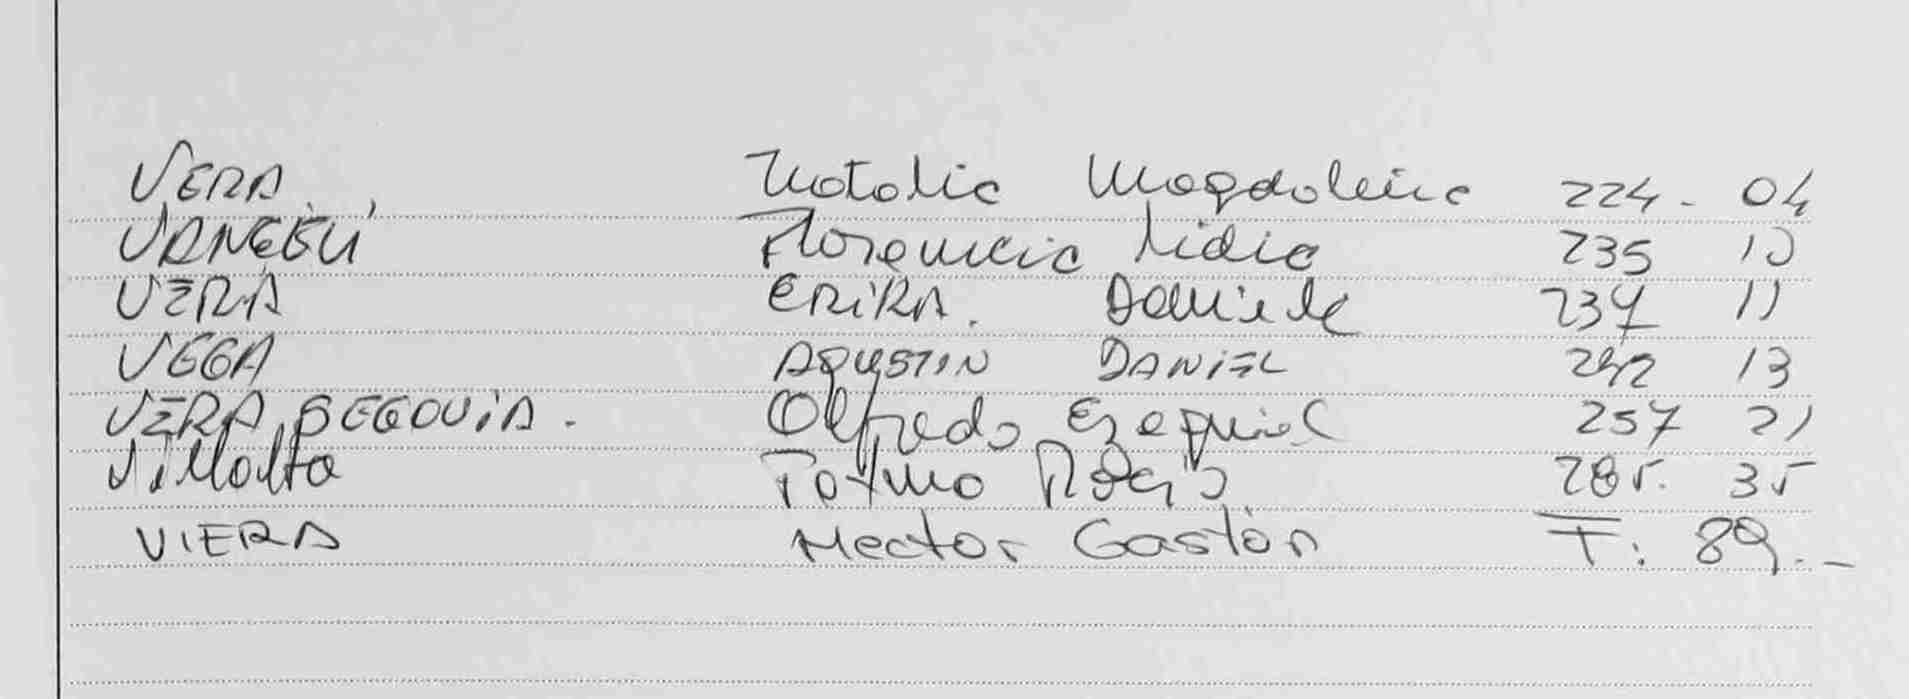 VERA Natalia Magdalena 224 - 04
Florencia Lidia 235 10
VERA ERIKA. Daniela 237 11
VEGA AGUSTIN DANIEL 242 13
VERA SEGOVIA. Alfredo Ezequiel 257 21
Villalta 285. 35
VIERA Hector Gastón T: 89.-